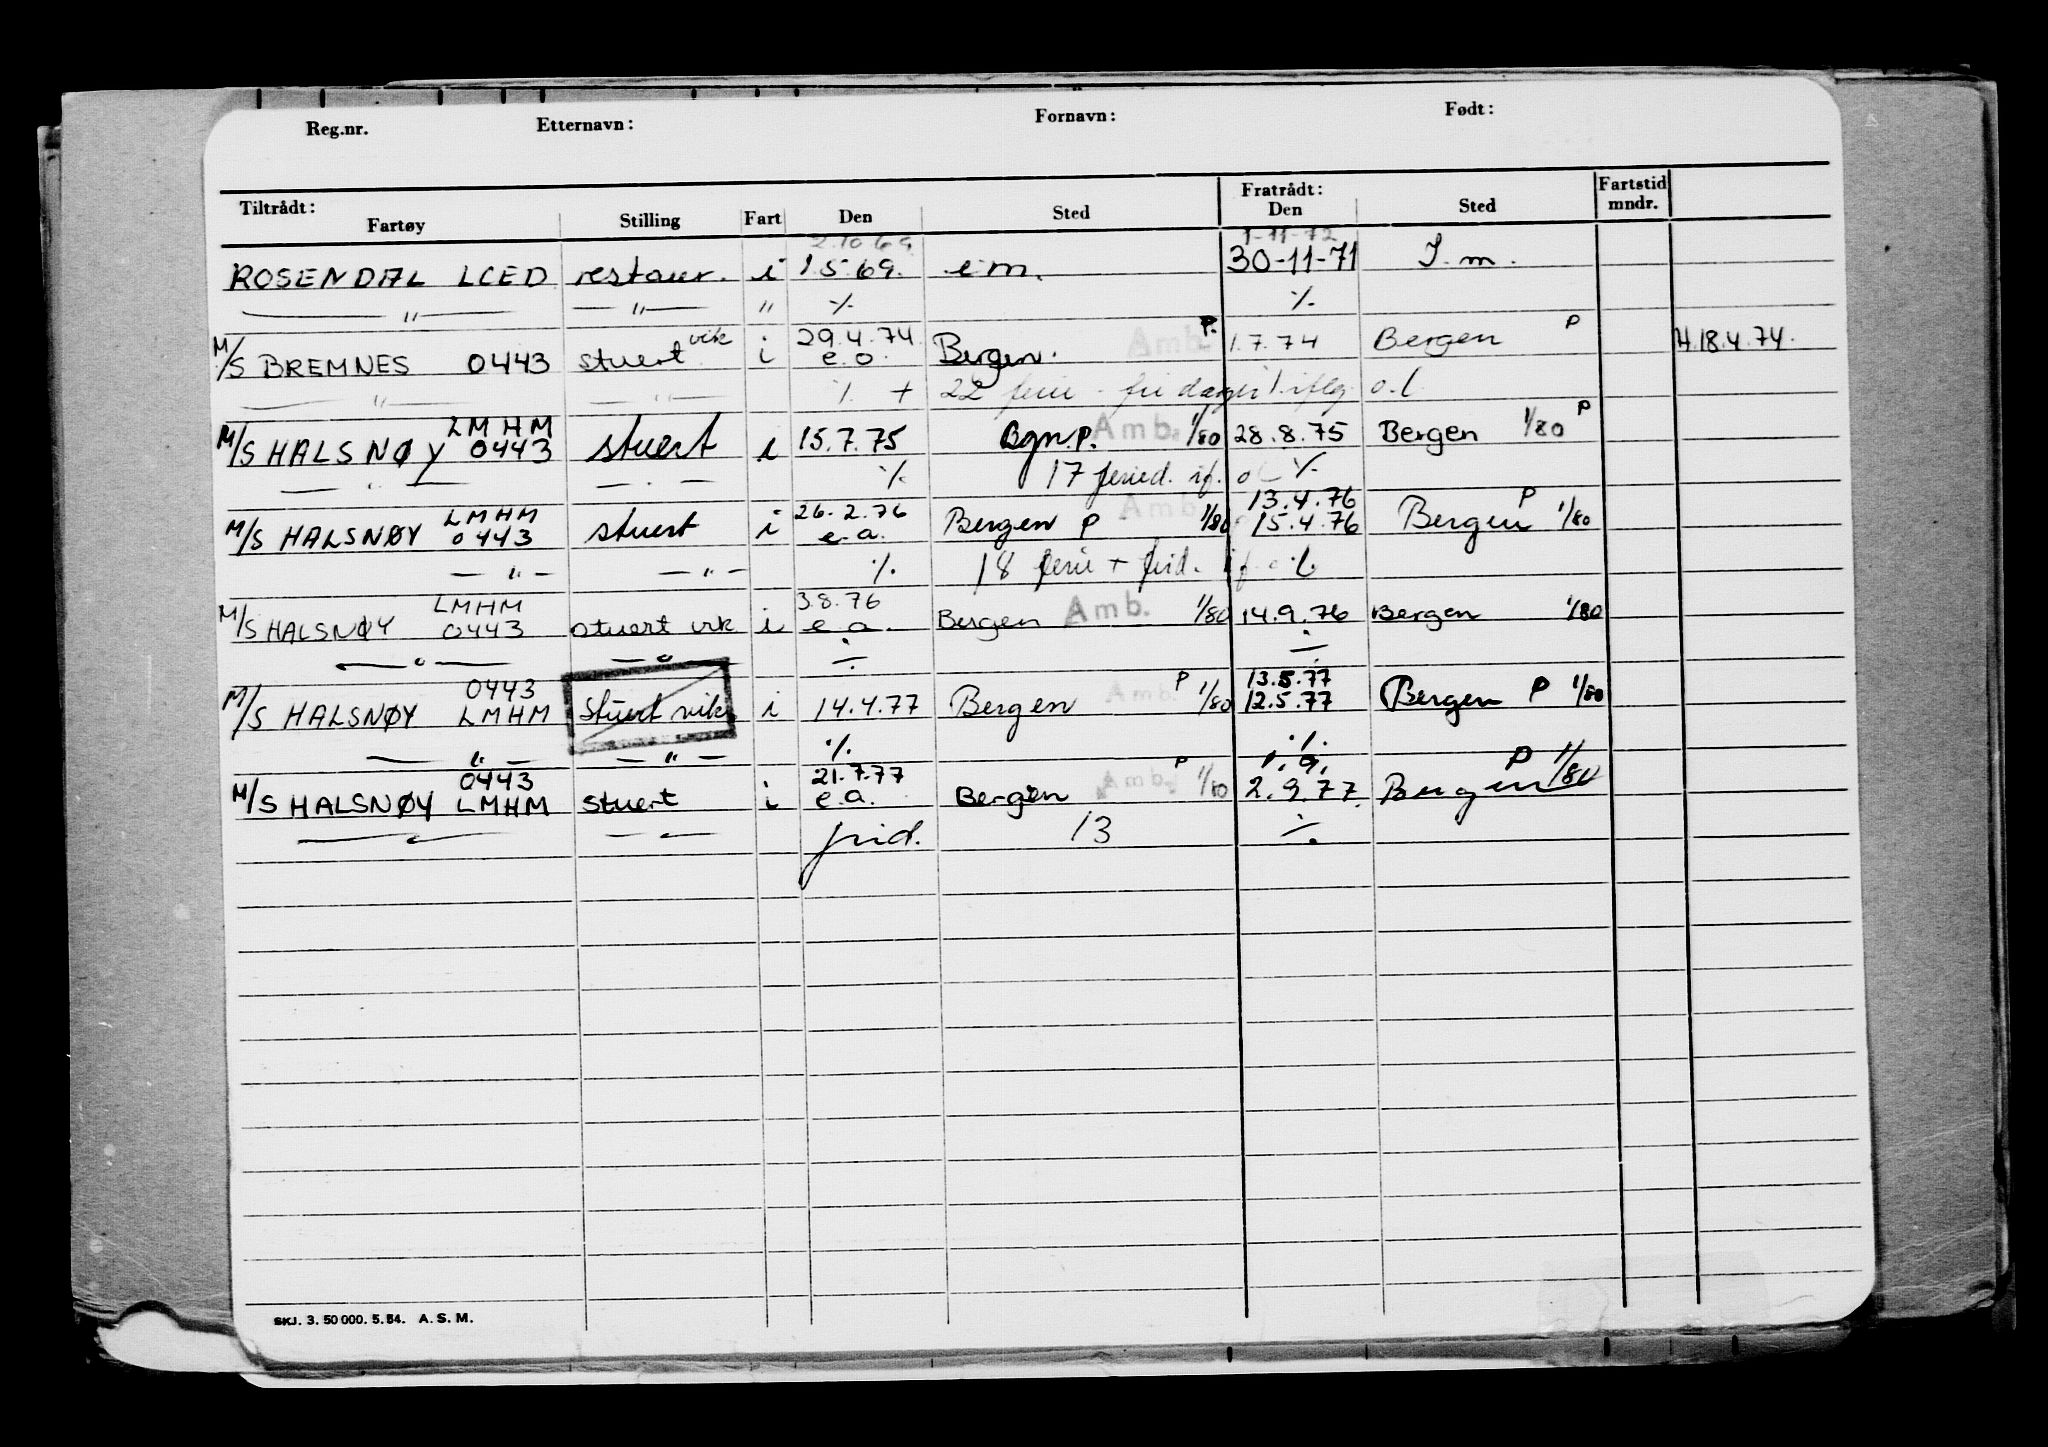 Reg.nr. Etternavn: Fornavn: Født:
Tiltrådt: Fratrådt: Fartstid
Fartøy Stilling Fart Den Sted Den Sted mndr.
2.10.69 1-11-72
ROSENDAL LCED restaur. i 1.5.69. i m. 30-11-71 I. m.
— " — — " — " % %
vik 29.4.74 P. P
M/S BREMNES 0443 stuert i e.o. Bergen. Amb. 1.7.74 Bergen H.18.4.74.
— " — — " — % + 22 ferie - fridager iflg. o.l
LMHM P
M/S HALSNØY 0443 stuert i 15.7.75 Bgn.P. Amb. 1/80 28.8.75 Bergen 1/80
— " — — " — % 17 feried. if. %
LMHM 26.2.76 Amb. 13.4.76 P
M/S HALSNØY 0443 stuert i e.a. Bergen P 1/80 15.4.76 Bergen 1/80
— " — — " — % 18 ferie + frid. if. %
LMHM 3.8.76
M/S HALSNØY 0443 stuert vik i e.a. Bergen Amb. 1/80 14.9.76 Bergen 1/80
— " — — " — ÷ ÷
0443 P 13.5.77
M/S HALSNØY LMHM Stuert vik i 14.4.77 Bergen Amb. 1/80 12.5.77 Bergen P 1/80
— " — — " — % %
0443 21.7.77 P 1.9. P 1/80
M/S HALSNØY LMHM stuert i e.a. Bergen Amb. 1/80 2.9.77. Bergen
— " — — " — frid. 13 ÷
SKJ. 3. 50 000. 5. 54. A. S. M.